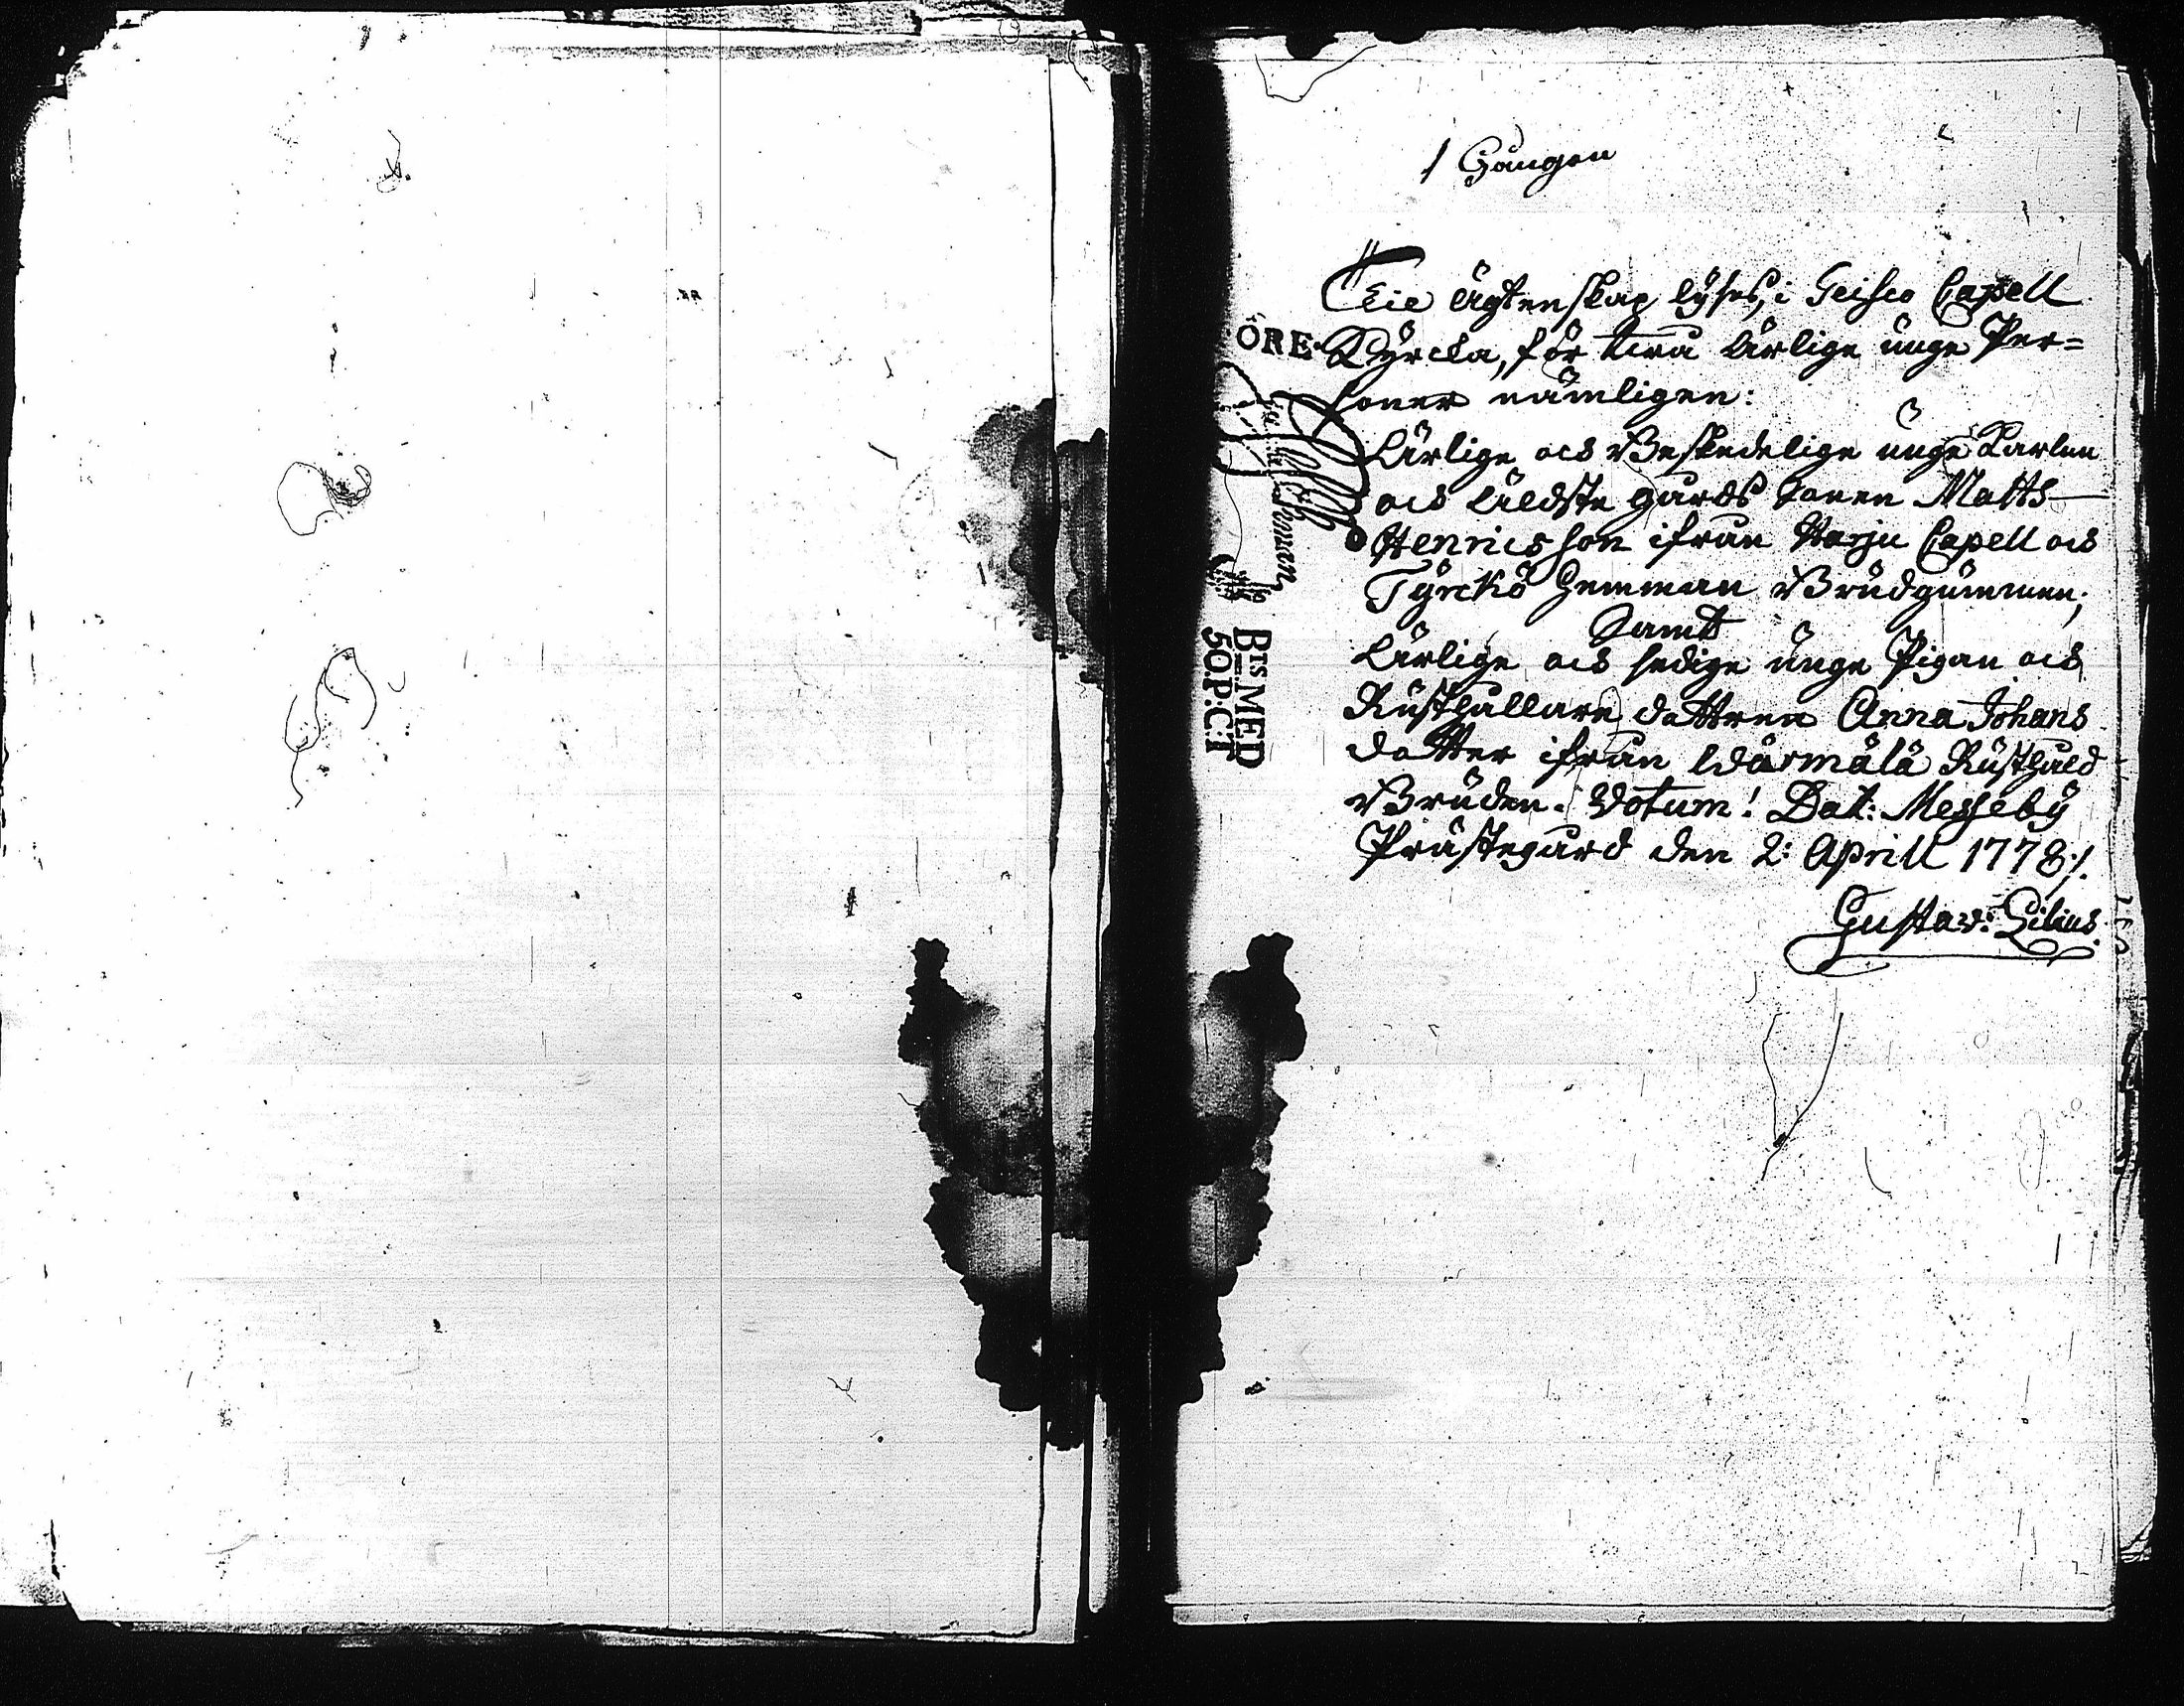 1 Gången
Til Ägtenskap lyses, i Teisco Capell
Kyrcka, för twå ärlige unge Per=
soner nämligen:
Ärlige och Beskedelige unge Karlen
och äldste gårds sonen Matts
Henricsson ifrån Harju Capell och
Tyrckö hemman Brudgummen;
Samt
Ärlige och sedige unge Pigan och
Rusthållare dottren Anna Johans
dotter ifrån Wärmälä Rusthåld
Bruden. Votum! Dat: Messeby
Prästegård den 2: Aprill 1778 ./.
Gustav: Lilius.
ÖRE.
BTS MED
50.P:CT